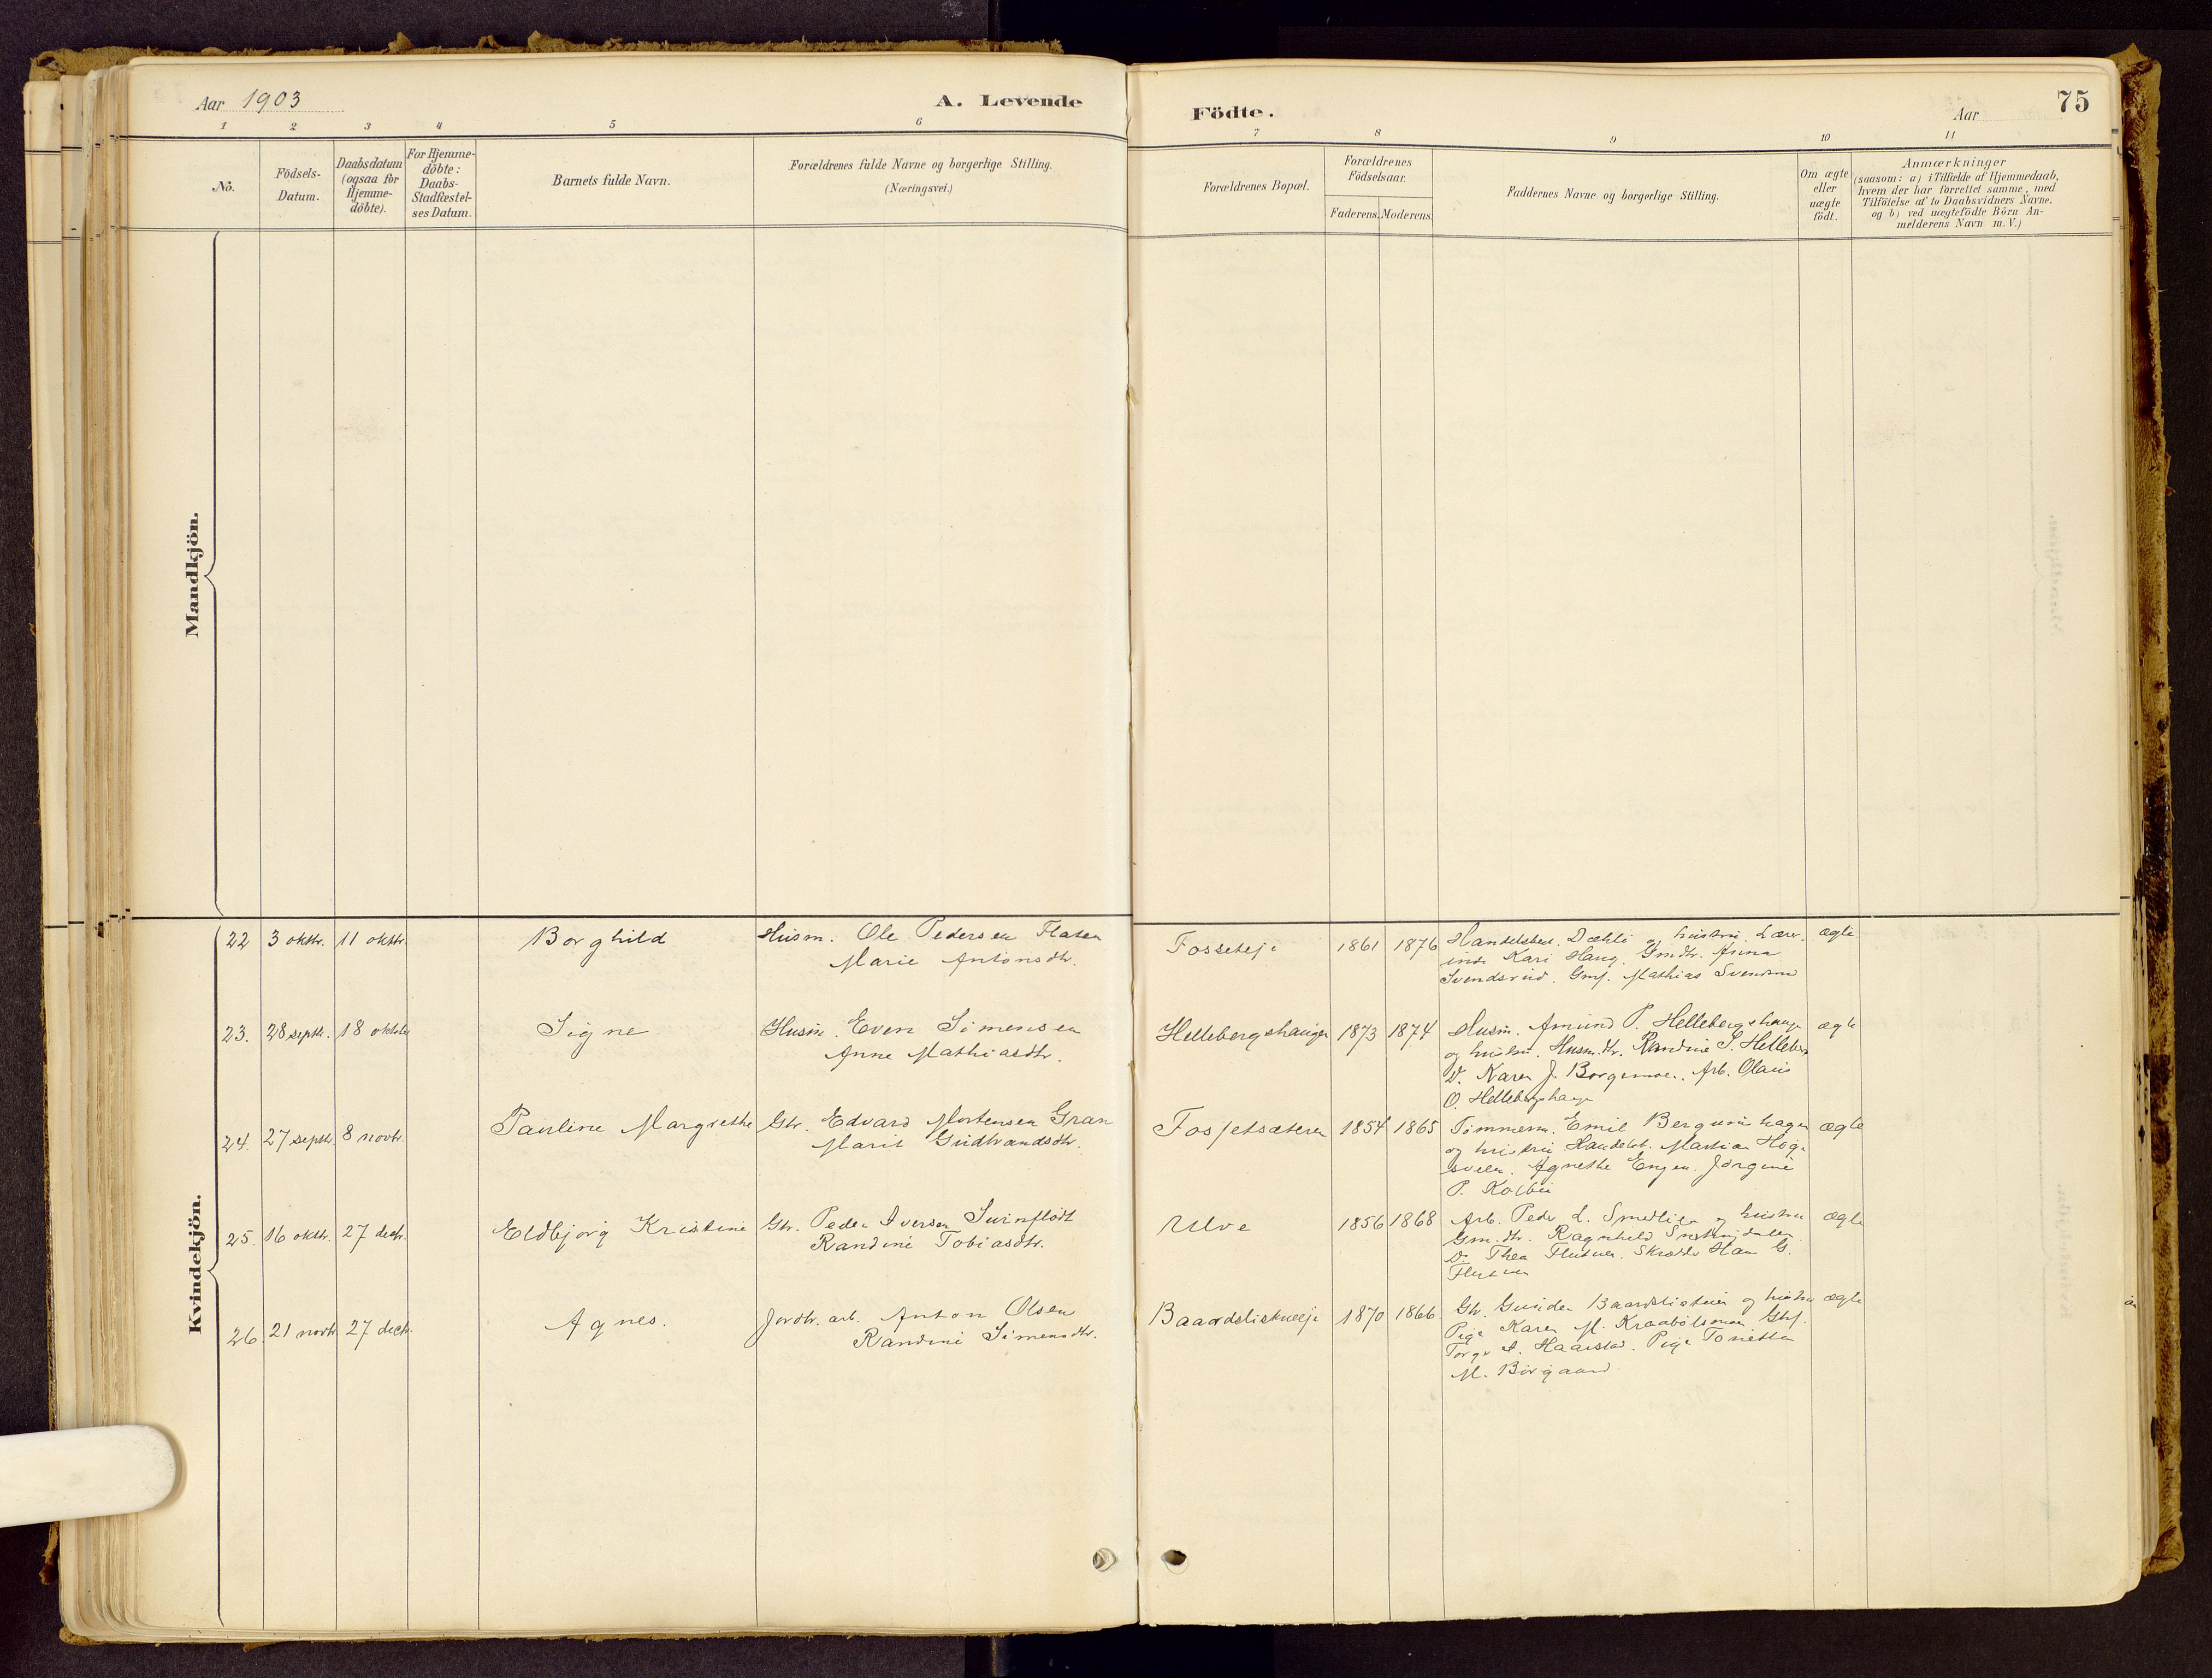 Aar 1903
A. Levende
Födte.
Aar
75
1 2 3 4 5 6 7 8 9 10 11
No.
Födsels-
Datum.
Daabsdatum
(ogsaa for
Hjemme-
döbte).
For Hjemme-
döbte:
Daabs-
Stadfæstel-
ses Datum.
Barnets fulde Navn.
Forældrenes fulde Navne og borgerlige Stilling.
(Næringsvei.)
Forældrenes Bopæl.
Forældrenes
Födselsaar.
Faderens. Moderens.
Faddernes Navne og borgerlige Stilling.
Om ægte
eller
uægte
födt.
Anmærkninger
(saasom: a) i Tilfælde af Hjemmedaab,
hvem der har forrettet samme, med
Tilföielse af to Daabsvidners Navne.
og b) ved uægtefödte Börn An-
melderens Navn m. V.)
Mandkjön.
Kvindekjön.
22 3 oktbr. 11 oktbr. Borghild
Husm. Ole Pedersen Flaten
Marie Antonsdtr.
Fosseteje 1861 1876
Handelsbest. Dæhli og hustru. Lærer-
inde Kari Haug. Gmdtr. Anna
Svendsrud. Gmf. Mathias Svendsrud
ægte
23. 28 septbr. 18 oktbr Signe
Husm. Even Simensen
Anne Mathiasdtr.
Hellebergshaugen 1873 1874
Husm. Amund P. Hellebergshaug
og hustru. Husm.dtr. Randine S. Helleberg
D. Karen J. Borgemoe. Arb. Olaus
O. Hellebergshaug
ægte
24. 27 septbr. 8 novbr. Pauline Margrethe
Gbr. Edvard Mortensen Gran
Marit Gudbrandsdtr.
Fosjetsæteren 1854 1865
Tømmerm. Emil Bergumhagen
og hustru Handelsb. Martian Høg-
sveen. Agnethe Engen. Jørgine
P. Kolbu
ægte
25. 16 oktbr. 27 decbr. Eldbjørg Kristine
Gbr. Peder Iversen Surnflødt
Randine Tobiasdtr.
Ulve 1856 1868
Arb. Peder L. Smedlien og hustru
Gm.dtr. Ragnhild
D. Thea Skrædder Han G.
ægte
26. 21 novbr. 27 decbr. Agnes.
Jordbr. arb. Anton Olsen
Randine Simensdtr.
Baardsliskveeje 1870 1866
Gbr. Gunder Baardslistuen og hustru
Pige Karen M. Kraabølsmoen Gbf.
Torger A. Haarstad. Pige Tonetta
M. Borgaard
ægte